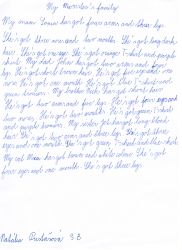 My Monster's family
My mum Louise has got four arms and three legs.
She's got three arms and two mouths. She's got long dark
hair. She's got orange T-shirt and purple
shirts. My dad has got two arms and four
legs. He's got short brown hair. He's got five eyes and one
nose. He's got one mouth. He's got blue T-shirt and
green trousers. My brother has got short hair.
He's got two arms and five legs. He's got four eyes and
two noses. He's got two mouths. He's got green T-shirt
and purple trousers. My sister has got long blond
hair. She's got two arms and three legs. She's got three
eyes and one mouth. She's got green T-shirt and blue
My cat has got brown and white. She's got
four eyes and one mouth. She's got three legs.
Natália 3.B